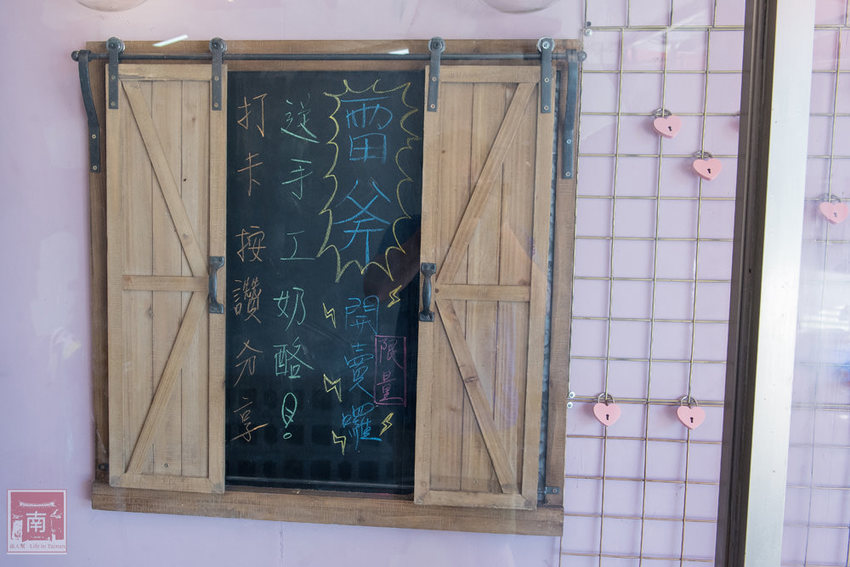 雷斧
開賣囉
限量
送手工奶酪!
打卡按讚分享
南
南人幫 Life in Tainan